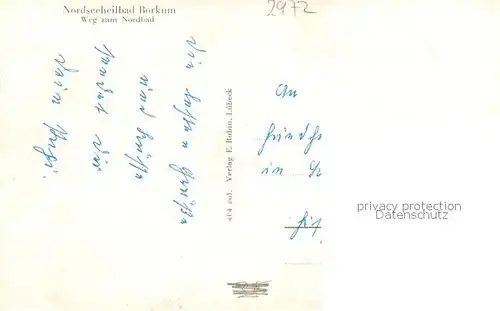 Nordseeheilbad Borkum
Weg zum Nordbad
2972
Die besten Grüße
und Küsse
sendet Dir
Dein
404 col. Verlag E. Rubin, Lübeck
An
in
privacy protection
Datenschutz